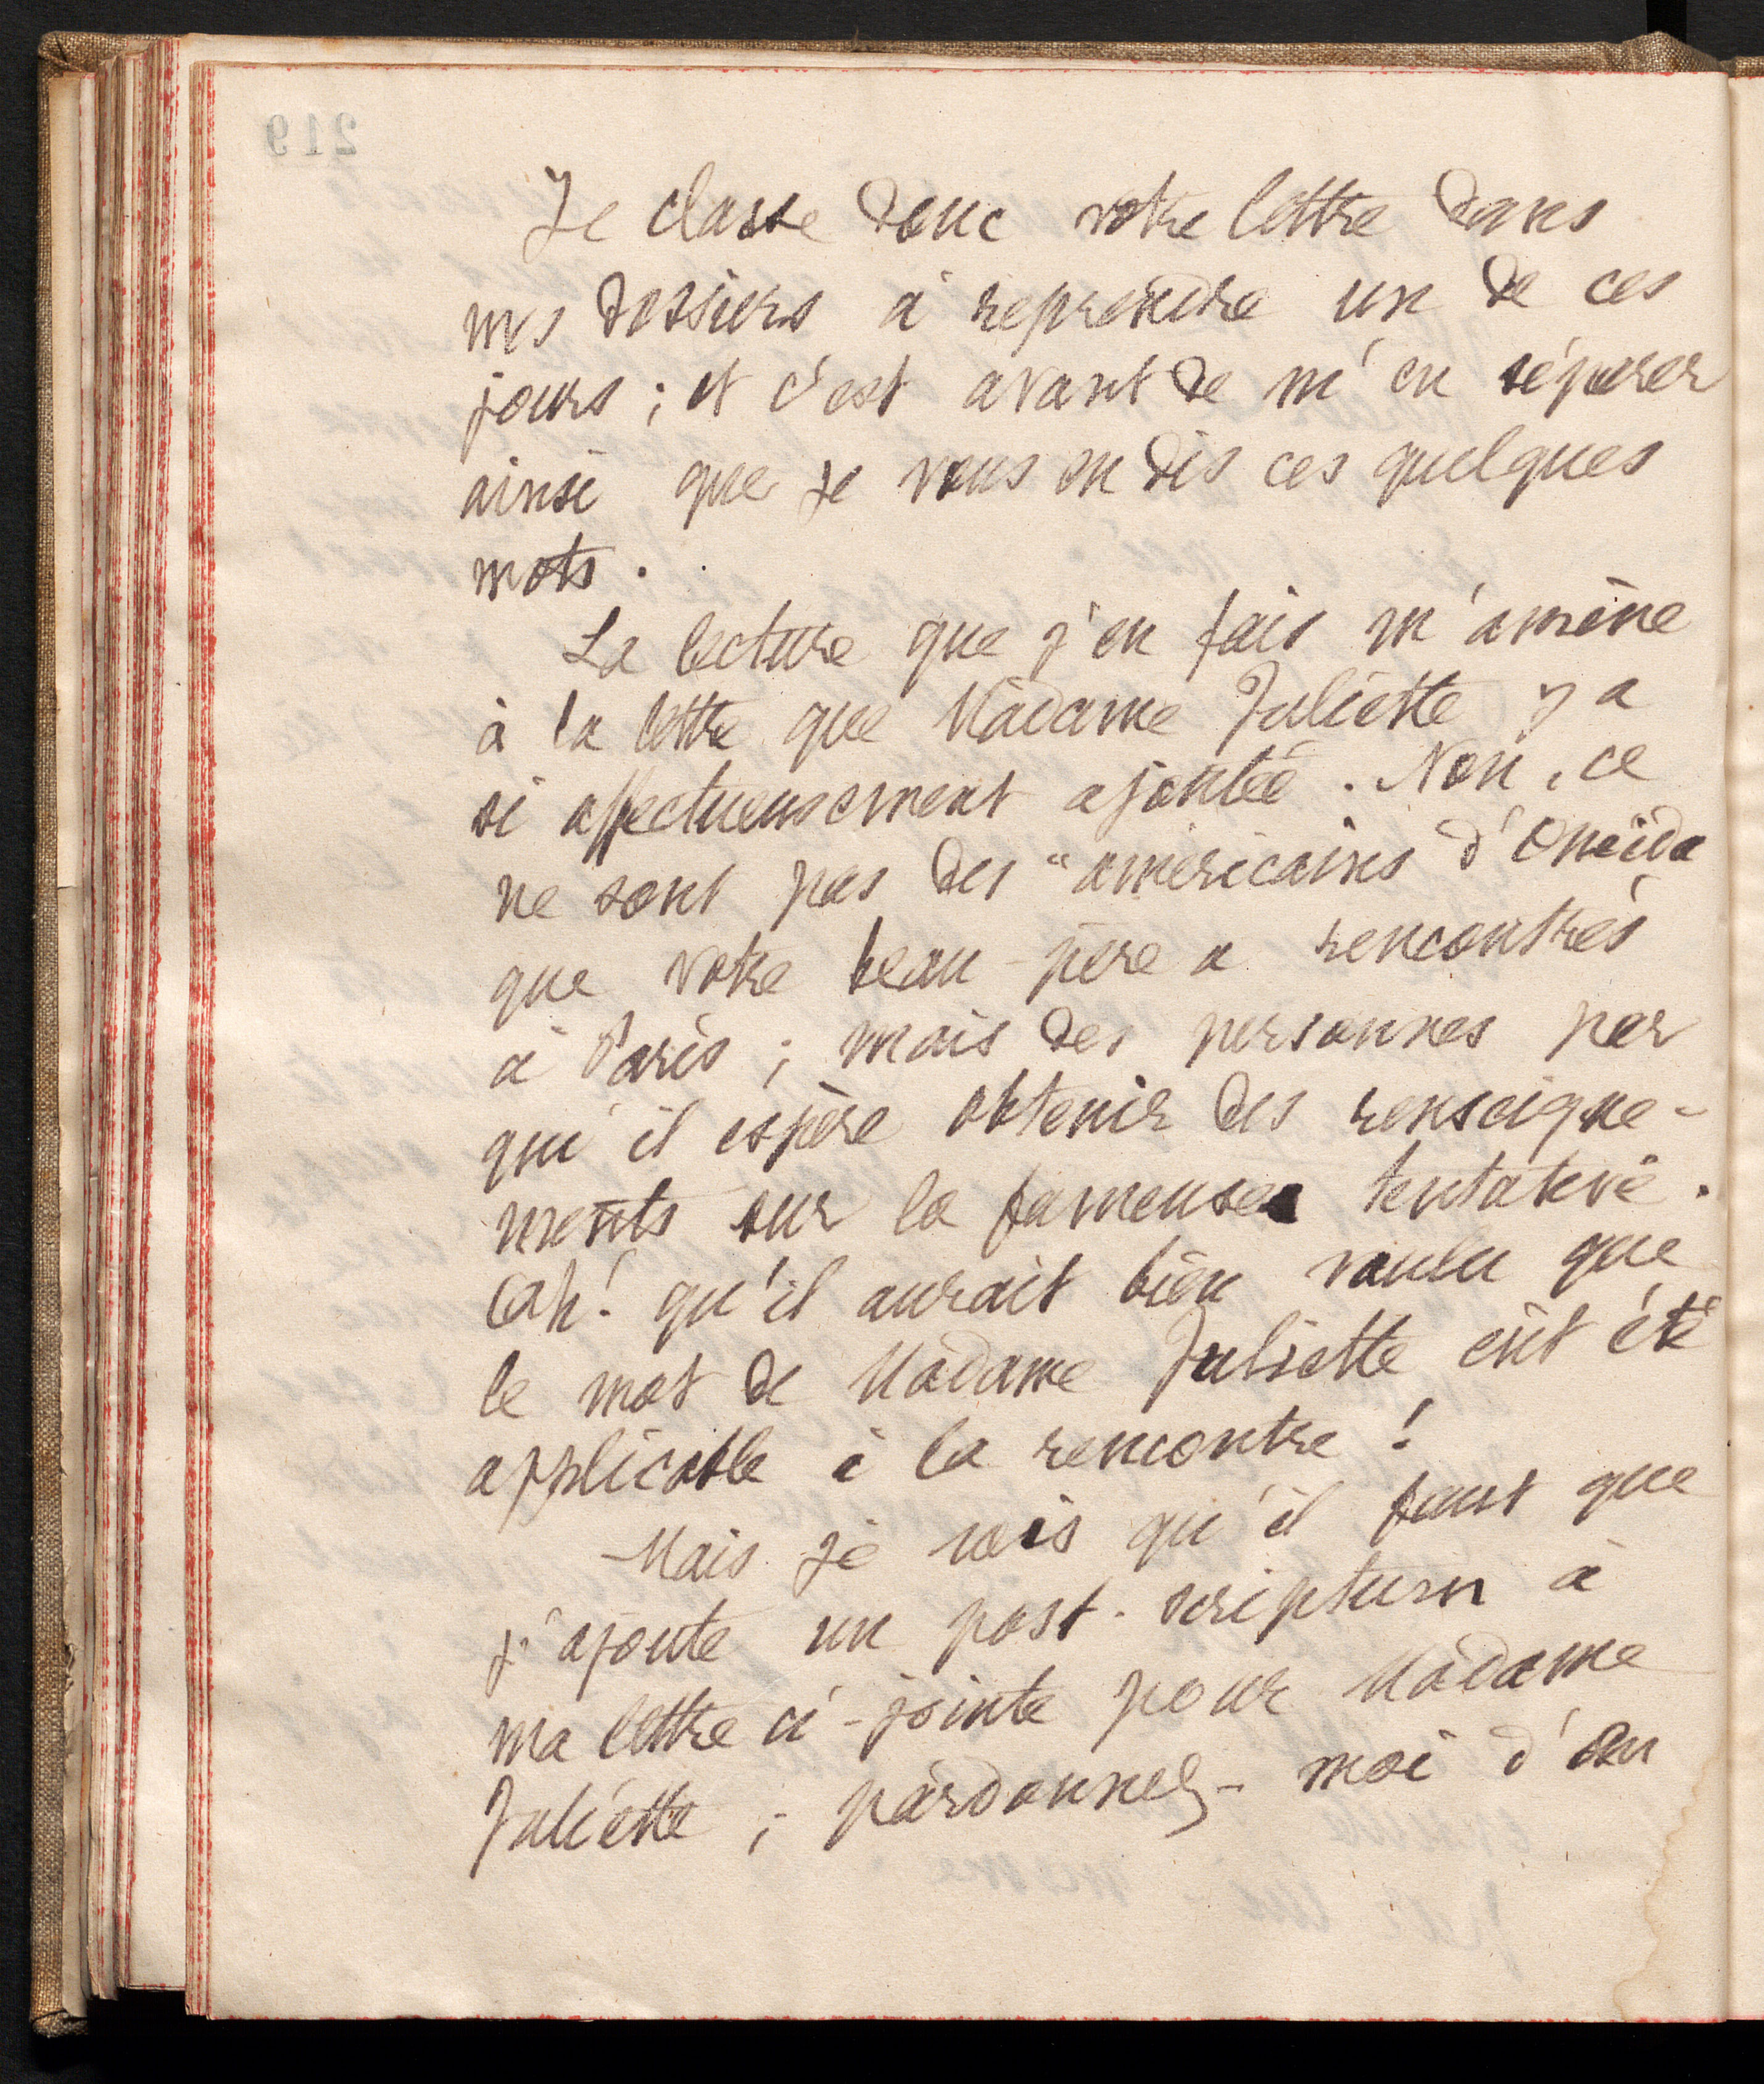 219
Je classe donc votre lettre dans
mes dossiers à reprendre un de ces
jours ; et c'est avant de m'en séparer
ainsi que je vous en dis ces quelques
mots .
La lecture que j'en fais m'amène
à la lettre que Madame Juliette y a
si affectueusement ajoutée . Non, ce
ne sont pas des "américains d'Oneïda
que votre beau-père a rencontrés
à Paris ; mais des personnes par
qui il espère obtenir des renseigne-
ments sur la fameuse tentative .
Oh ! qu'il aurait bien voulu que
le mot de Madame Juliette eût été
applicable à la rencontre !
Mais je vois qu'il faut que
j'ajoute un post-scriptum à
ma lettre ci-jointe pour Madame
Juliette ; pardonnez-moi d'en